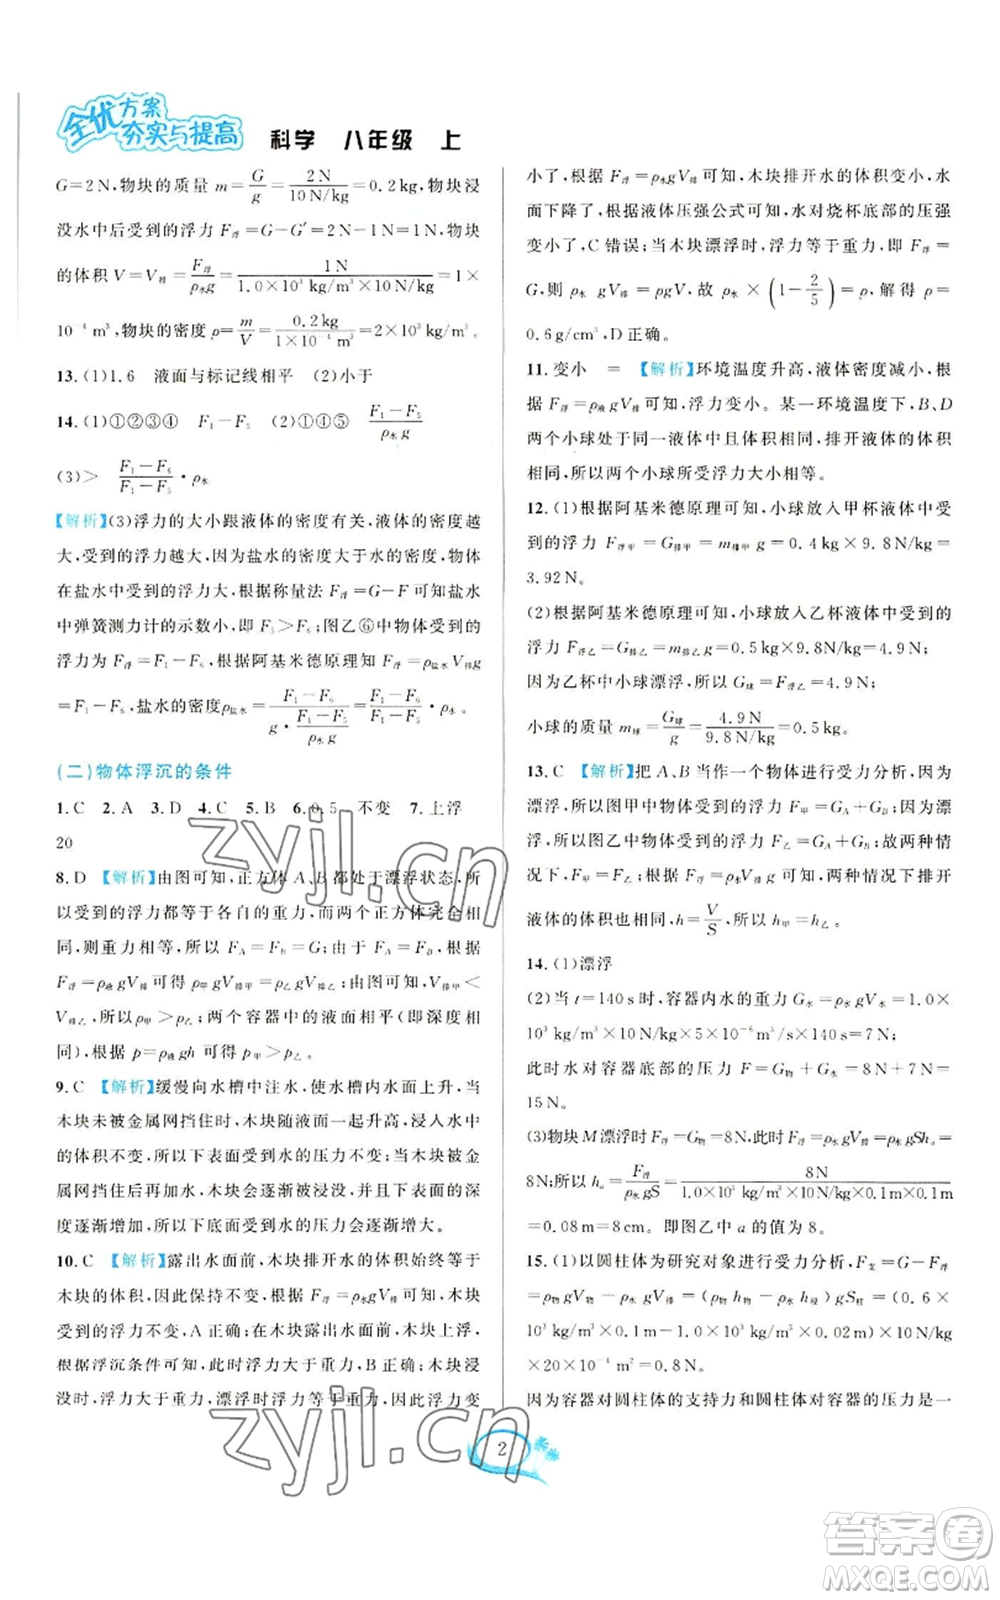 全优方案
夯实与提高 科学 八年级 上
G=2N,物块的质量 m=G/g=2N/10N/kg=0.2kg,物块浸
没水中后受到的浮力 F浮=G-G′=2N-1N=1N,物块
的体积 V=V排=F浮/ρ水g=1N/1.0×10³kg/m³×10N/kg=1×
10⁻⁴m³,物块的密度 ρ=m/V=0.2kg/1×10⁻⁴m³=2×10³kg/m³。
13.(1)1.6 液面与标记线相平 (2)小于
14.(1)①②③④ F₁-F₅ (2)①④⑤ F₁-F₅/ρ水g
(3)> F₁-F₆/F₁-F₅·ρ水
【解析】(3)浮力的大小跟液体的密度有关,液体的密度越
大,受到的浮力越大,因为盐水的密度大于水的密度,物体
在盐水中受到的浮力大,根据称量法 F浮=G-F 可知盐水
中弹簧测力计的示数小,即 F₅>F₆;图乙⑥中物体受到的
浮力为 F₁-F₆,根据阿基米德原理知 F浮=ρ盐水V排g
=F₁-F₆,盐水的密度ρ盐水=F₁-F₆/g·F₁-F₅/ρ水g=F₁-F₆/F₁-F₅·ρ水。
(二)物体浮沉的条件
1.C 2.A 3.D 4.C 5.B 6.0.5 不变 7.上浮
20
8.D 【解析】由图可知,正方体A、B都处于漂浮状态,所
以受到的浮力都等于各自的重力,而两个正方体完全相
同,则重力相等,所以 FA=FB=G;由于 FA=FB,根据
F浮=ρ液gV排 可得 ρ甲gV排甲=ρ乙gV排乙;由图可知,V排甲<
V排乙,所以 ρ甲>ρ乙;两个容器中的液面相平(即深度相
同),根据 p=ρ液gh 可得 p甲>p乙。
9.C 【解析】缓慢向水槽中注水,使水槽内水面上升,当
木块未被金属网挡住时,木块随液面一起升高,浸入水中
的体积不变,下底面受到水的压力不变;当木块被金
属网挡住后再加水,木块会逐渐被浸没,并且所处的深
度逐渐增加,所以下底面受到水的压力会逐渐增大。
10.C 【解析】露出水面前,木块排开水的体积始终等于
木块的体积,因此保持不变,根据 F浮=ρ水gV排 可知,木块
受到的浮力不变,A 正确;在木块露出水面前,木块上浮,
根据浮沉条件可知,此时浮力大于重力,B 正确;木块浸
没时,浮力大于重力,漂浮时浮力等于重力,因此浮力变
小了,根据 F浮=ρ水gV排 可知,木块排开水的体积变小,水
面下降了,根据液体压强公式可知,水对烧杯底部的压强
变小了,C 错误;当木块漂浮时,浮力等于重力,即 F浮=
G,则 ρ水 gV排=ρgV,故 ρ水×(1-2/5)=ρ,解得 ρ=
0.6g/cm³,D 正确。
11.变小 = 【解析】环境温度升高,液体密度减小,根
据 F浮=ρ液gV排 可知,浮力变小。某一环境温度下,B、D
两个小球处于同一液体中且体积相同,排开液体的体积
相同,所以两个小球所受浮力大小相等。
12.(1)根据阿基米德原理可知,小球放入甲杯液体中受
到的浮力 F浮甲=G排甲=m排甲g=0.4kg×9.8N/kg=
3.92N。
(2)根据阿基米德原理可知,小球放入乙杯液体中受到的
浮力 F浮乙=G排乙=m排乙g=0.5kg×9.8N/kg=4.9N;
因为乙杯中小球漂浮,所以 G球=F浮乙=4.9N;
小球的质量 m球=G球/g=4.9N/9.8N/kg=0.5kg。
13.C 【解析】把 A、B 当作一个物体进行受力分析,因为
漂浮,所以图甲中物体受到的浮力 F甲=GA+GB;因为漂
浮,所以图乙中物体受到的浮力 F乙=GA+GB;故两种情
况下,F甲=F乙。因为 F浮=ρ液gV排,两种情况下排开
液体的体积也相同,h=V/S,所以 h甲=h乙。
14.(1)漂浮
(2)当 t=140s时,容器内水的重力 G水=ρ水gV水=1.0×
10³kg/m³×10N/kg×5×10⁻⁶m³/s×140s=7N;
此时水对容器底部的压力 F=G物+G水=8N+7N=
15N。
(3)物块M漂浮时F浮=G物=8N,此时F浮=ρ水gV排=ρ水gSha=
8N;所以 ha=F浮/ρ水gS=8N/1.0×10³kg/m³×10N/kg×0.1m×0.1m
=0.08m=8cm。即图乙中 a 的值为 8。
15.(1)以圆柱体为研究对象进行受力分析,F支=G-F浮
=ρ物gV物-ρ水gV排=(ρ物h物-ρ水h浸)gS柱=(0.6×
10³kg/m³×0.3m-1.0×10³kg/m³×0.14m)×10N/kg
×20×10⁻⁴m²=0.8N。
因为容器对圆柱体的支持力和圆柱体对容器的压力是一
2
zyjl.cn
zyjl.cn
答案圈
MXQE.COM